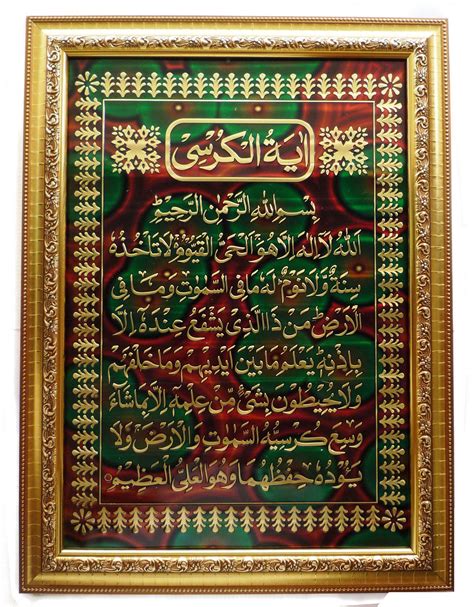 اٰیَةُ الْكُرْسِی
بِسْمِ اللهِ الرَّحْمٰنِ الرَّحِیْمِ
اَللهُ لَا اِلٰهَ اِلَّا هُوَ اَلْحَیُّ الْقَیُّوْمُ لَا تَاْخُذُهٗ
سِنَةٌ وَّلَا نَوْمٌ لَهٗ مَا فِی السَّمٰوٰتِ وَمَا فِی
الْاَرْضِ مَنْ ذَا الَّذِیْ یَشْفَعُ عِنْدَهٗ اِلَّا
بِاِذْنِهٖ یَعْلَمُ مَا بَیْنَ اَیْدِیْهِمْ وَمَا خَلْفَهُمْ
وَلَا یُحِیْطُوْنَ بِشَیْءٍ مِّنْ عِلْمِهٖ اِلَّا بِمَاشَآءَ
وَسِعَ كُرْسِیُّهُ السَّمٰوٰتِ وَالْاَرْضَ وَلَا
یَئُوْدُهٗ حِفْظُهُمَا وَهُوَ الْعَلِیُّ الْعَظِیْمُ